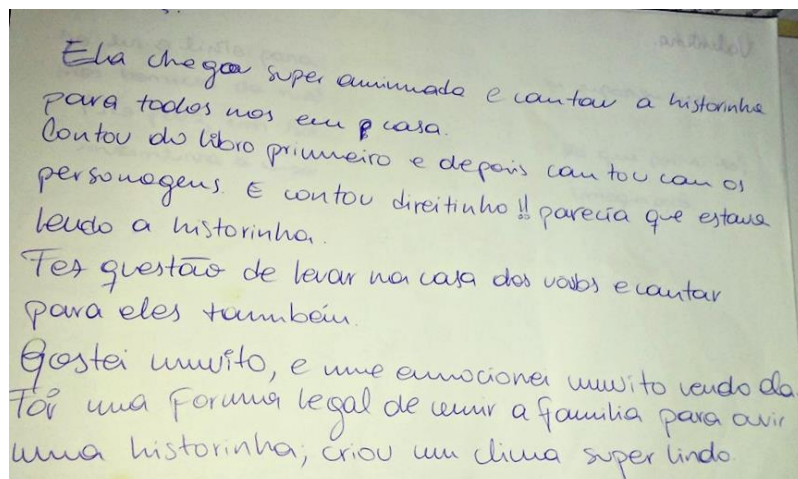 Ela chegou super animada e contou a historinha
para todos nos em casa.
Contou do libro primeiro e depois contou con os
personagens. E contou direitinho!! parecia que estava
lendo a historinha.
Fez questão de levar na casa dos vovós e contar
para eles também.
Gostei muito, e me emocionei muito vendo ela.
Foi uma forma legal de unir a família para ouvir
uma historinha, criou um clima super lindo